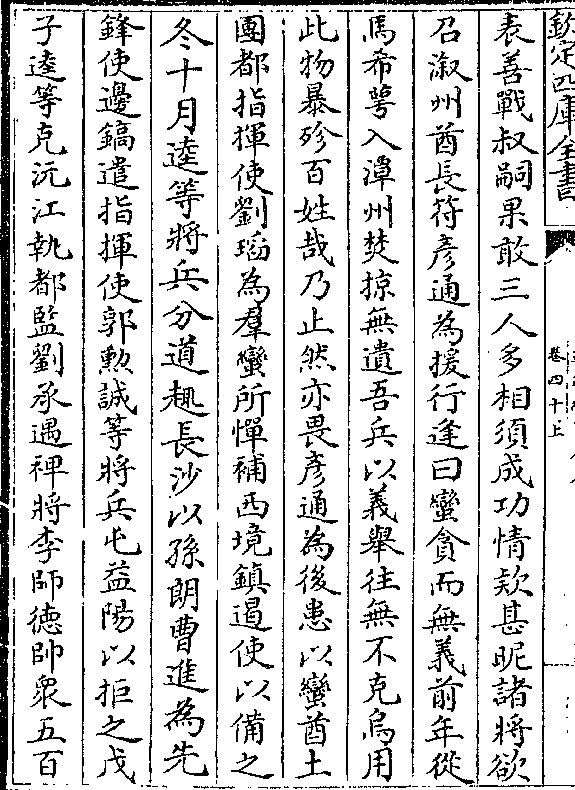 欽定四庫全書
卷四十上
表善戰叔嗣果敢三人多相須成功情欵甚昵諸將欲
召溆州酋長符彦通為援行逢曰蠻貪而無義前年從
馬希萼入潭州焚掠無遺吾兵以義舉往無不克烏用
此物暴殄百姓哉乃止然亦畏彦通為後患以蠻酋土
團都指揮使劉瑫為羣蠻所憚補西境鎮遏使以備之
冬十月逵等將兵分道趣長沙以孫朗曹進為先
鋒使邊鎬遣指揮使郭勲誠等將兵屯益陽以拒之戊
子逵等克沅江執都監劉承遇裨將李師徳帥衆五百